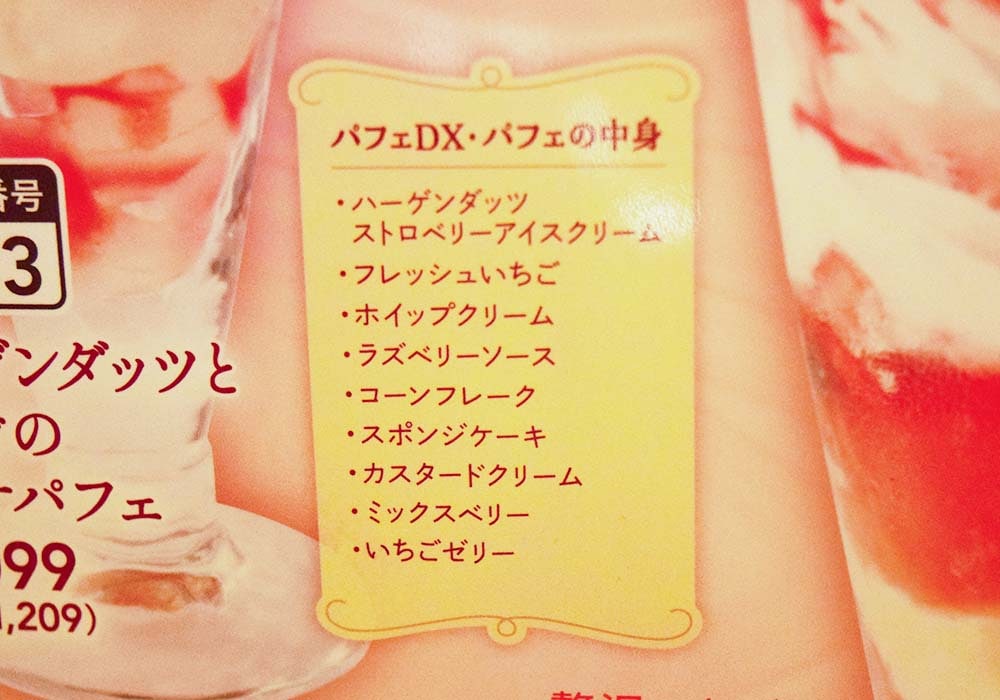 パフェDX・パフェの中身
・ハーゲンダッツ
ストロベリーアイスクリーム
・フレッシュいちご
・ホイップクリーム
・ラズベリーソース
・コーンフレーク
・スポンジケーキ
・カスタードクリーム
・ミックスベリー
・いちごゼリー
番号
3
ゲンダッツと
の
パフェ
99
1,209)